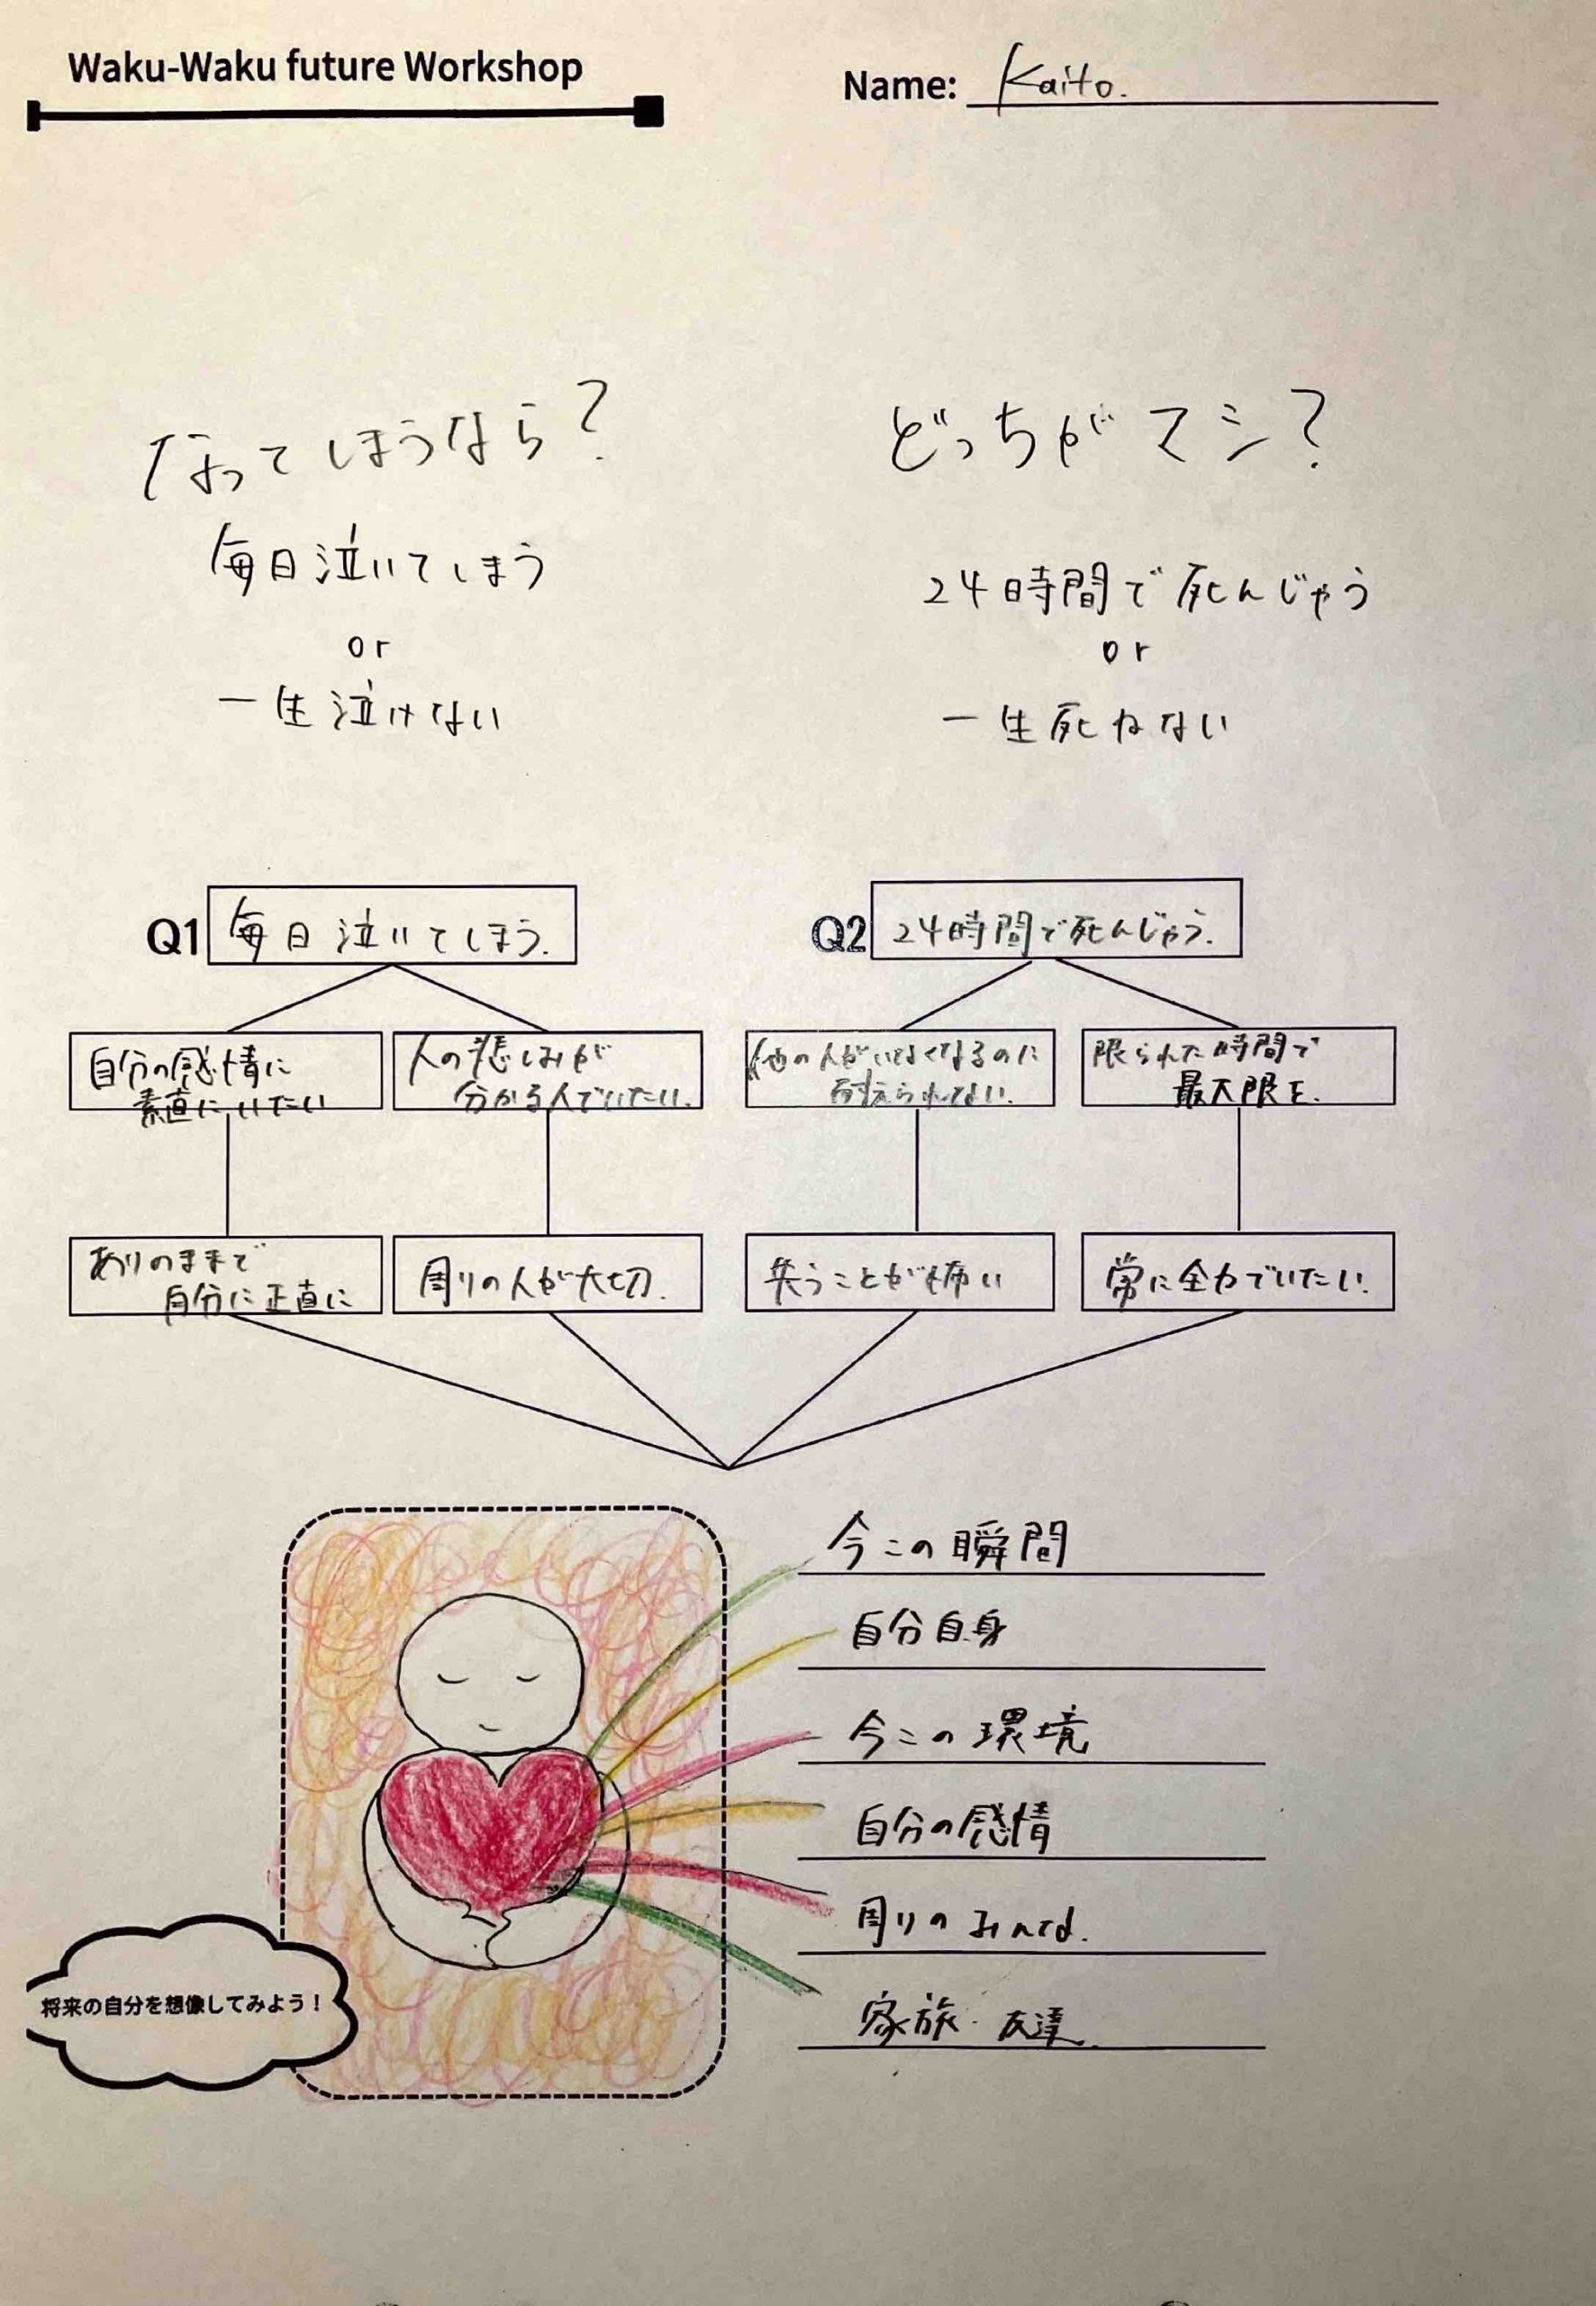 Waku-Waku future Workshop
Name: Kaito.
なってしまうなら？
毎日泣いてしまう
or
一生泣けない
どっちがマシ？
24時間で死んじゃう
or
一生死ねない
Q1 毎日泣いてしまう.
自分の感情に
素直にいたい
人の悲しみが
分かる人でいたい.
ありのままで
自分に正直に
周りの人が大切.
Q2 24時間で死んじゃう.
他の人がいなくなるのに
耐えられない.
限られた時間で
最大限を.
失うことが怖い
常に全力でいたい.
今この瞬間
自分自身
今この環境
自分の感情
周りのみんな.
家族・友達.
将来の自分を想像してみよう！